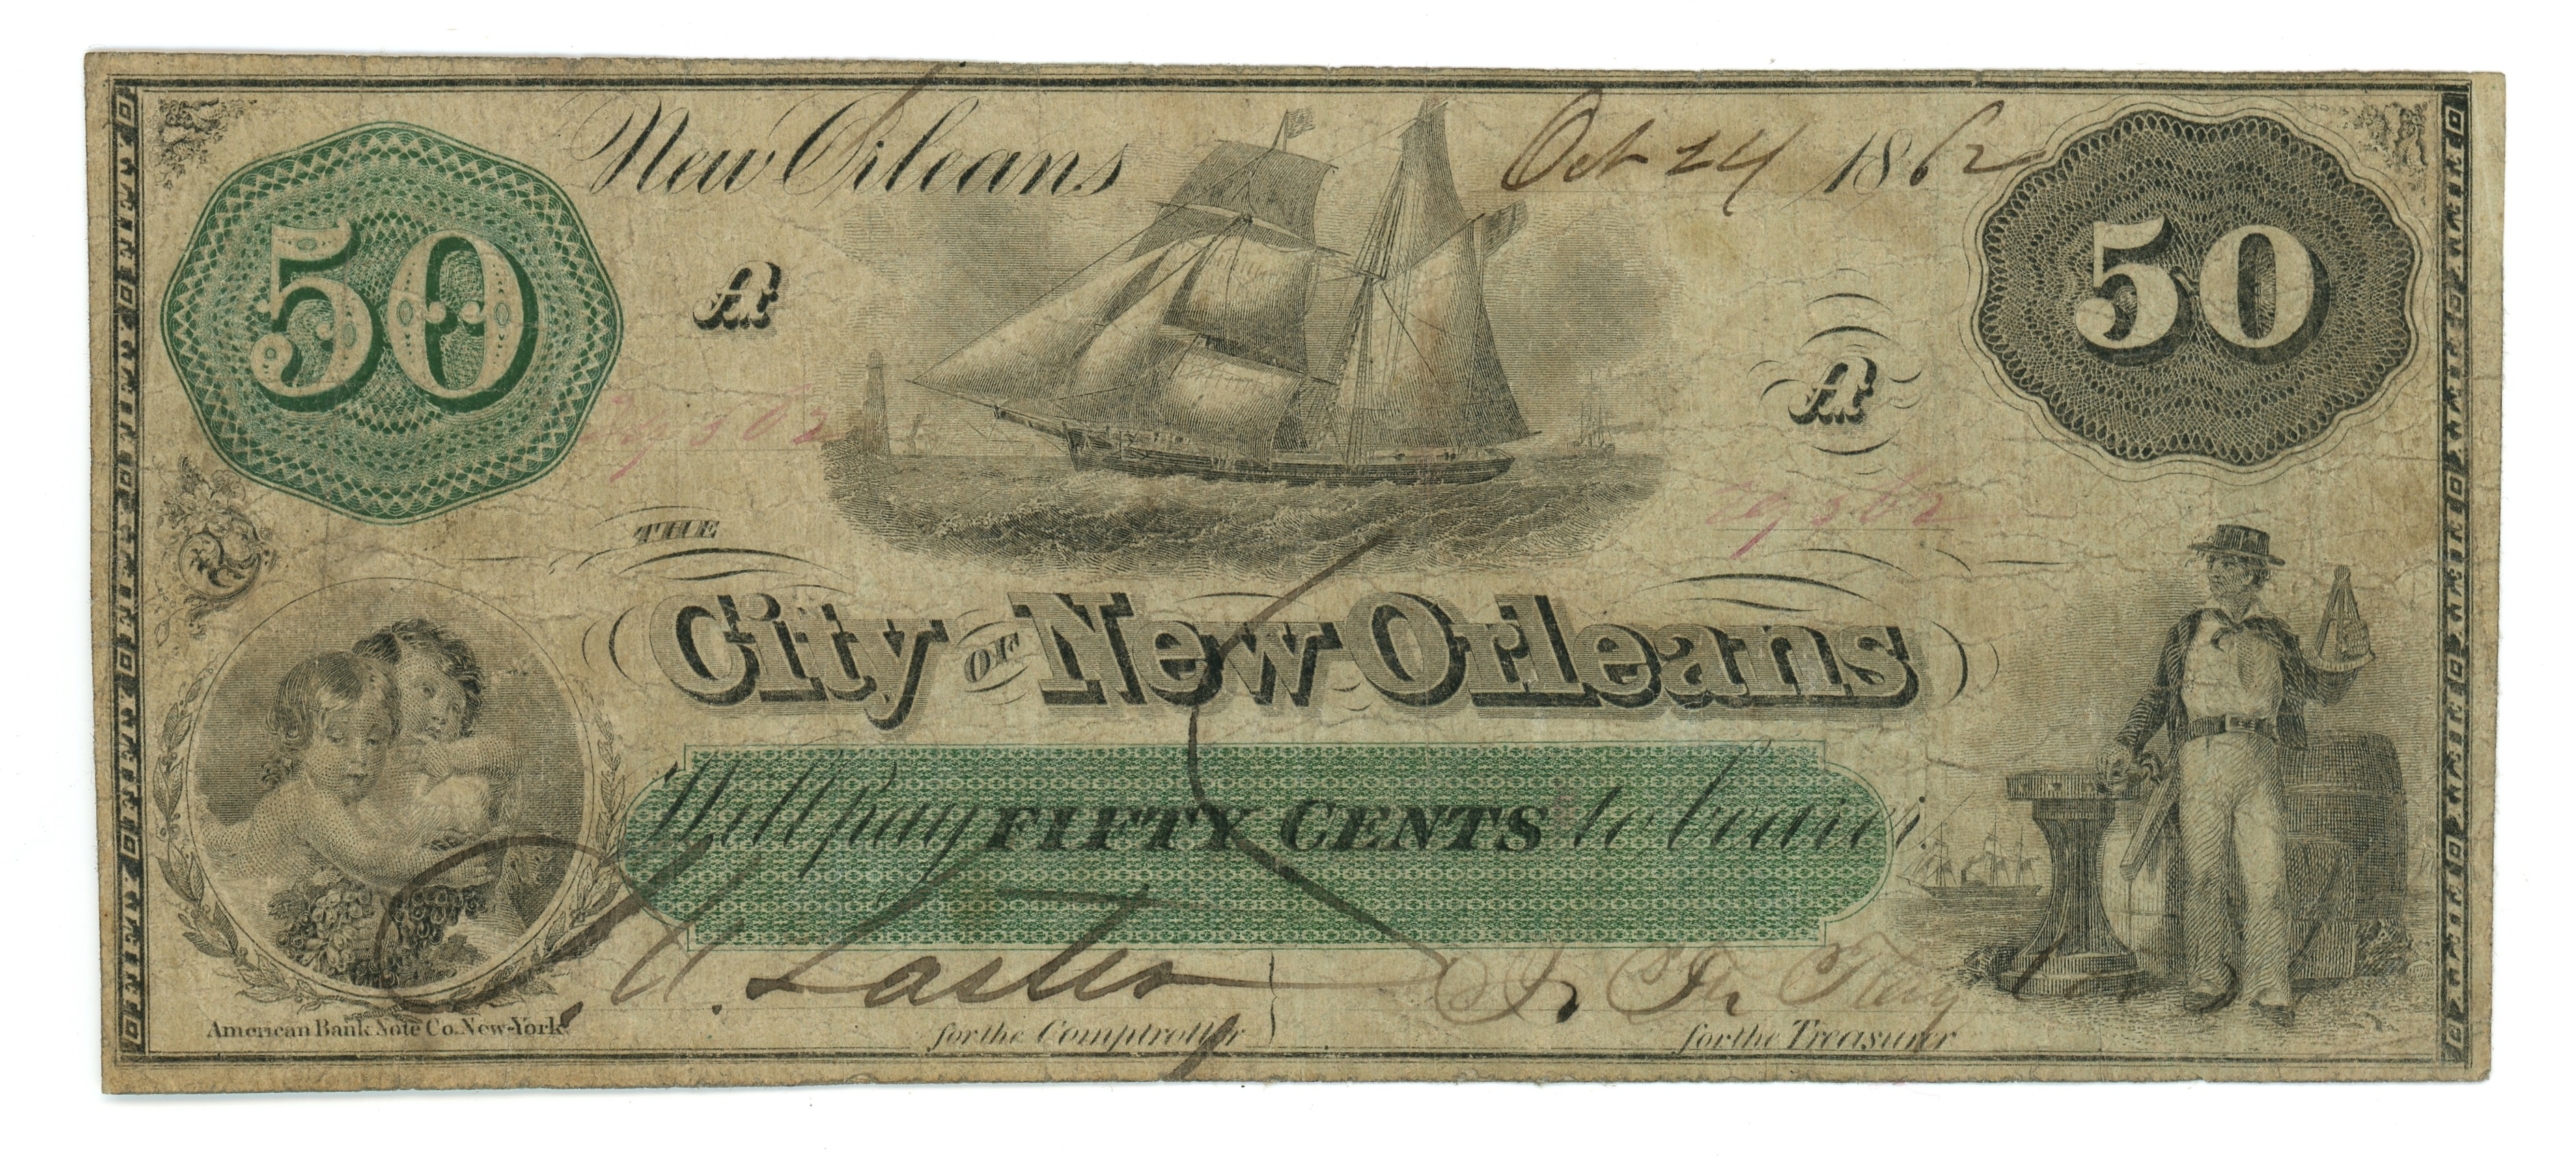 New Orleans Oct 24 1862
50
50
A
A
THE
City OF New Orleans
Will pay FIFTY CENTS to bearer.
American Bank Note Co. New-York.
for the Comptroller
for the Treasurer